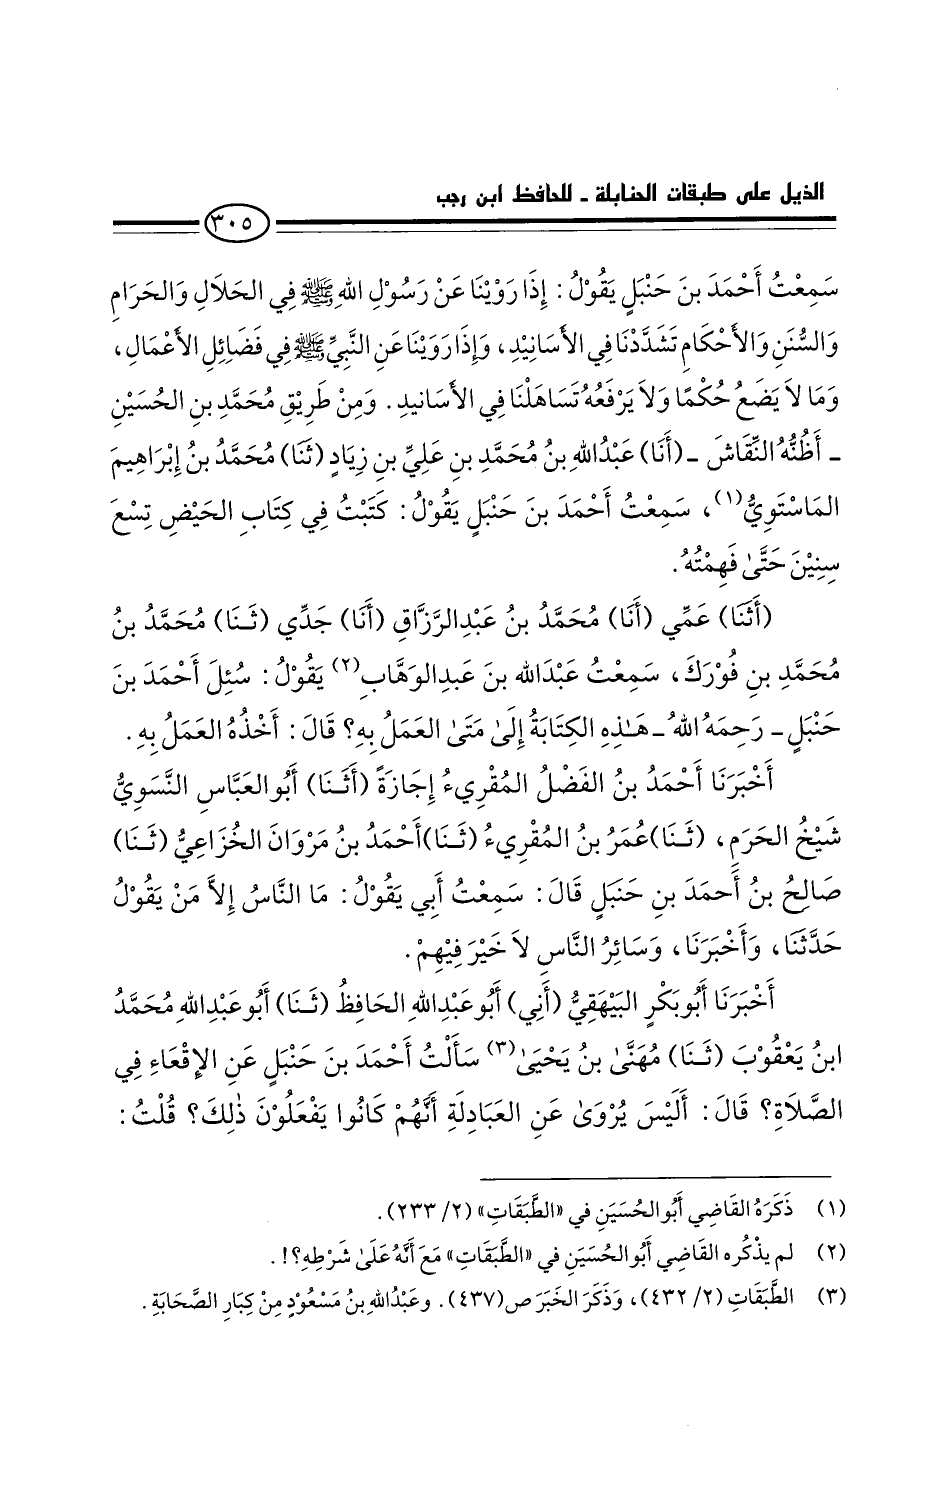 الذيل على طبقات الحنابلة ـ للحافظ ابن رجب
٣٠٥
سَمِعْتُ أَحْمَدَ بنَ حَنْبَلٍ يَقُوْلُ : إِذَا رَوَيْنَا عَنْ رَسُوْلِ اللهِ ﷺ فِي الحَلَالِ وَالحَرَامِ
وَالسُّنَنِ وَالأَحْكَامِ تَشَدَّدْنَا فِي الأَسَانِيْدِ، وَإِذَا رَوَيْنَا عَنِ النَّبِيِّ ﷺ فِي فَضَائِلِ الأَعْمَالِ،
وَمَا لاَ يَضَعُ حُكْمًا وَلاَ يَرْفَعُهُ تَسَاهَلْنَا فِي الأَسَانيدِ. وَمِنْ طَرِيْقِ مُحَمَّدِ بنِ الحُسَيْنِ
ـ أَظُنُّهُ النَّقَّاشَ ـ (أَنَا) عَبْدُاللهِ بنُ مُحَمَّدِ بنِ عَلِيِّ بنِ زِيَادٍ (ثَنَا) مُحَمَّدُ بنُ إِبْرَاهِيمَ
المَاسْتَوِيُّ(١)، سَمِعْتُ أَحْمَدَ بنَ حَنْبَلٍ يَقُوْلُ: كَتَبْتُ فِي كِتَابِ الحَيْضِ تِسْعَ
سِنِيْنَ حَتَّىٰ فَهِمْتُهُ.
(أَثَنَا) عَمِّي (أَنَا) مُحَمَّدُ بنُ عَبْدِالرَّزَّاقِ (أَنَا) جَدِّي (ثَنَا) مُحَمَّدُ بنُ
مُحَمَّدِ بنِ فُوْرَكَ، سَمِعْتُ عَبْدَاللهِ بنَ عَبدِالوَهَّابِ(٢) يَقُوْلُ: سُئِلَ أَحْمَدَ بنَ
حَنْبَلٍ ـ رَحِمَهُ اللهُ ـ هَـٰذِهِ الكِتَابَةُ إِلَىٰ مَتَىٰ العَمَلُ بِهِ؟ قَالَ: أَخْذُهُ العَمَلُ بِهِ.
أَخْبَرَنَا أَحْمَدُ بنُ الفَضْلُ المُقْرِيءُ إِجَازَةً (أَثَنَا) أَبُو العَبَّاسِ النَّسَوِيُّ
شَيْخُ الحَرَمِ، (ثَنَا) عُمَرُ بنُ المُقْرِيءُ (ثَنَا) أَحْمَدُ بنُ مَرْوَانَ الخُزَاعِيُّ (ثَنَا)
صَالِحُ بنُ أَحمَدَ بنِ حَنْبَلٍ قَالَ: سَمِعْتُ أَبِي يَقُوْلُ: مَا النَّاسُ إِلاَّ مَنْ يَقُوْلُ
حَدَّثَنَا، وَأَخْبَرَنَا، وَسَائِرُ النَّاسِ لاَ خَيْرَ فِيْهِمْ.
أَخْبَرَنَا أَبُو بَكْرٍ البَيْهَقِيُّ (أَنِي) أَبُو عَبْدِاللهِ الحَافِظُ (ثَنَا) أَبُو عَبْدِاللهِ مُحَمَّدُ
ابنُ يَعْقُوْبَ (ثَنَا) مُهَنَّىٰ بنُ يَحْيَىٰ(٣) سَأَلْتُ أَحْمَدَ بنَ حَنْبَلٍ عَنِ الإِقْعَاءِ فِي
الصَّلَاةِ؟ قَالَ: أَلَيْسَ يُرْوَىٰ عَنِ العَبَادِلَةِ أَنَّهُمْ كَانُوا يَفْعَلُوْنَ ذٰلِكَ؟ قُلْتُ:
(١) ذَكَرَهُ القَاضِي أَبُو الحُسَيَنِ فِي «الطَّبَقَاتِ» (٢/ ٢٣٣).
(٢) لم يذْكُره القَاضِي أَبُو الحُسَيَنِ في «الطَّبَقَاتِ» مَعَ أَنَّهُ عَلَىٰ شَرْطِهِ؟!.
(٣) الطَّبَقَاتِ (٢/ ٤٣٢)، وَذَكَرَ الخَبَرَ ص (٤٣٧). وعَبْدُاللهِ بنُ مَسْعُوْدٍ مِنْ كِبَارِ الصَّحَابَةِ.